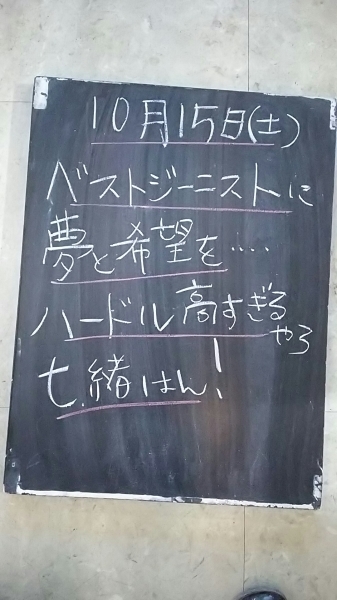 10月15日(土)
ベストジーニストに
夢と希望を....
ハードル高すぎる
やろ
七緒はん!